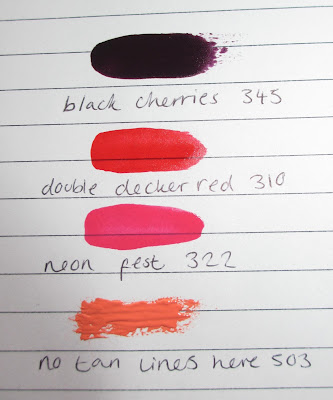 black cherries 345
double decker red 310
neon fest 322
no tan lines here 503